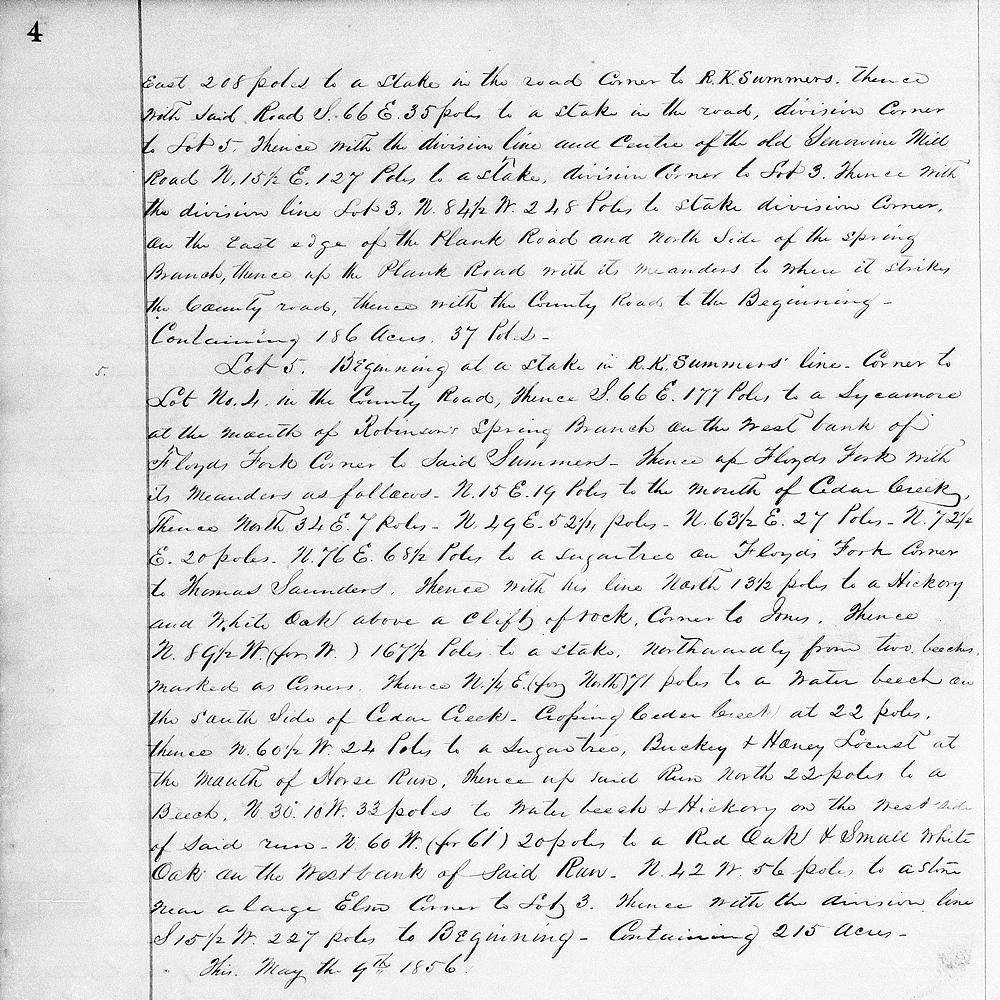 4
East 208 poles to a Stake in the road Corner to R.K. Summers. Thence
with Said Road S. 66 E. 35 poles to a Stake in the road, division Corner
to Lot 5. Thence with the division line and Centre of the old Mill
Road N. 15½ E. 127 Poles to a Stake, division Corner to Lot 3. Thence with
the division line Lot 3. N. 84½ W. 248 Poles to Stake division Corner,
on the East edge of the Plank Road and North Side of the Spring
Branch, thence up the Plank Road with its meanders to where it strikes
the County road, thence with the County Road to the Beginning -
Containing 186 Acres. 37 Poles -
5. Lot 5. Beginning at a Stake in R.K. Summers' line - Corner to
Lot No. 4. in the County Road, Thence S. 66 E. 177 Poles to a Sycamore
at the mouth of Robinson's Spring Branch on the West bank of
Floyds Fork Corner to Said Summers - Thence up Floyds Fork with
its meanders as follows - N. 15 E. 19 Poles to the mouth of Cedar Creek,
Thence North 34 E. 7 Poles - N. 49 E. 52¼ poles - N. 63½ E. 27 Poles - N. 72½
E. 20 poles. N. 76 E. 68½ Poles to a Sugartree on Floyds Fork Corner
to Thomas Saunders. Thence with his line North 13½ poles to a Hickory
and White Oak above a Clift of rock, Corner to Jones. Thence
N. 89½ W. (for W.) 167½ Poles to a Stake, Northwardly from two beeches,
marked as Corners. Thence N. ¼ E. (for North) 71 poles to a Water beech on
the South Side of Cedar Creek - Crossing Cedar Creek at 22 poles,
thence N. 60½ W. 24 Poles to a Sugartree, Buckey & Honey Locust at
the mouth of Norse Run, Thence up said Run North 22 poles to a
Beech, N 30.10 W. 33 poles to Water beech & Hickory on the West side
of Said run - N 60 W. (for 61) 20 poles to a Red Oak & Small White
Oak on the West bank of Said Run - N. 42 W. 56 poles to a stone
near a large Elm Corner to Lot 3. Thence with the division line
S 15½ W. 227 poles to Beginning - Containing 215 Acres -
This. May the 9th 1856.